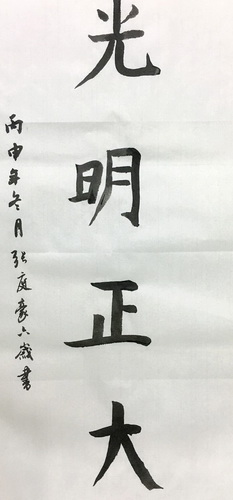 光明正大
丙申年冬月张庭豪六岁书